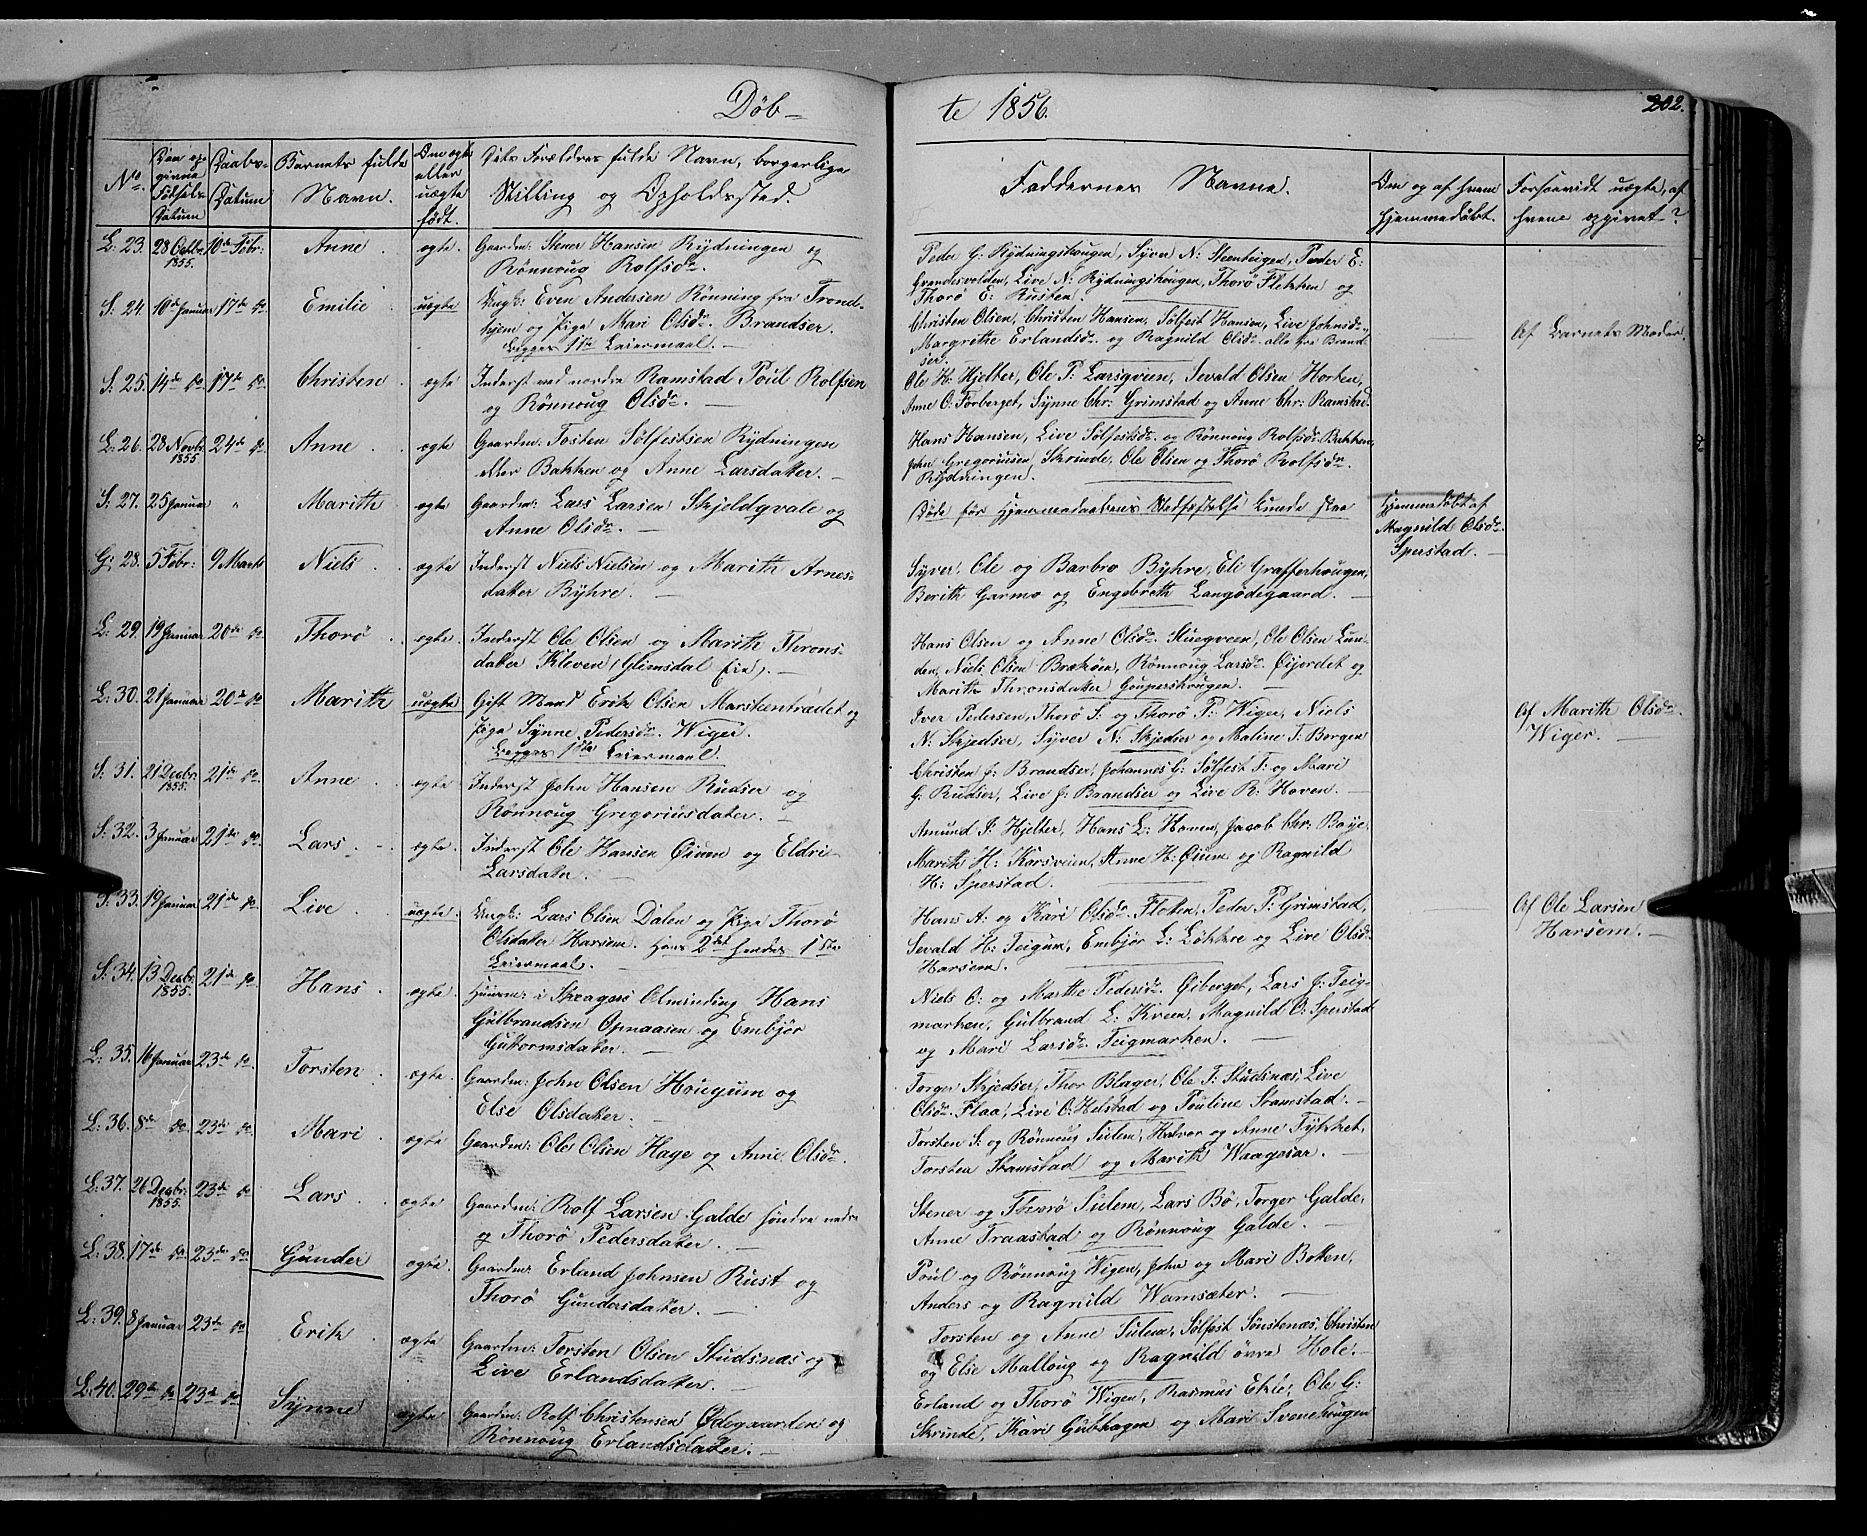 Døb-
te 1856.
202.
No.
Den opgivne Fødsels Datum
Daabs-Datum
Barnets fulde Navn.
Om ægte eller uægte født.
Dets Forældres fulde Navn, borgerlige Stilling og Opholdssted.
Faddernes Navne.
Om og af hvem hjemmedøbt.
Forsaavidt uægte, af hvem opgivet?
L: 23. 28 Octbr. 1855. 10de Febr: Anne ægte. Gaardm: Stener Hansen Rydningen og
Rønnoug Rolfsdr. —
Peder G: Rydningshougen, Syver N: Steenbeigen, Peder E:
Grandesvolden, Live N: Rydningshougen, Thorø Flekken og
Thorø E: Rusten.
S: 24. 10de Januar 17de do. Emilie uægte Ungk: Even Andersen Rønning fra Trond-
hjem og Pige Mari Olsdr. Brandser.
Begges 1ste Leiermaal. —
Christen Olsen, Christen Hansen, Sølfest Hansen, Live Johnsdr.,
Margrethe Erlandsdr. og Ragnild Olsdr. alle fra Brand-
ser.
Af Barnets Moder.
S: 25. 14de do 17de do. Christen ægte Inderst ved nordre Ramstad Poul Rolfsen
og Rønnoug Olsdr. —
Ole H: Hjelter, Ole P: Larsgveen, Sevald Olsen Horten,
Anne O: Forberget, Synne Chr: Grimstad og Anne Chr: Ramstad.
L: 26. 28 Novbr. 1855. 24de do Anne ægte Gaardm: Tosten Sølfestsen Rydningen
eller Bakken og Anne Larsdatter. —
Hans Hansen, Live Sølfestsdr. og Rønnoug Rolfsdr. Bakken,
John Gregoriusen, Skrinde, Ole Olsen og Thorø Rolfsdr.
Rydningen.
S: 27. 25 Januar " Marith ægte Gaardm: Lars Larsen Skjeldqvale og
Anne Olsdr. —
Døde før Hjemmedaabens Stedfæstelse kunde skee
Hjemmedøbt af
Magnild Olsdr.
Sperstad. —
G: 28. 5 Febr: 9 Marts Niels ægte Inderst Niels Nielsen og Marith Arnes-
datter Byhre. —
Syver, Ole og Barbro Byhre, Eli Grafferhougen,
Berith Garmo og Engebreth Langødegaard. —
L: 29. 19 Januar 20de do. Thorø ægte. Inderst Ole Olsen og Marith Throns-
datter Kleven (Glimsdal Eie). —
Hans Olsen og Anne Olsdr. Stuegveen, Ole Olsen Lun-
den, Niels Olsen Brækøen, Rønnoug Larsdr. Øijordet og
Marith Thronsdatter Goupershougen. —
L: 30. 21 Januar 20de do Marith uægte Gift Mand Erik Olsen Marsteentrædet og
Pige Synne Pedersdr. Wiger.
Begges 1ste Leiermaal.
Iver Pedersen, Thorø S: og Thorø P: Wiger, Niels
N: Skjedser, Syver N: Skjedser og Maline T: Borgen
Af Marith Olsdr.
Wiger. —
S: 31. 21 Decbr. 1855. 21de do. Anne ægte Inderst John Hansen Rudser og
Rønnoug Gregoriusdatter. —
Christen J: Brandser, Johannes G: Sølfest T: og Mari
G: Rudser, Live J: Brandser og Live R: Hoven. —
S: 32. 3 Januar 21de do. Lars ægte. Inderst Ole Hansen Øium og Eldri
Larsdatter. —
Amund J: Hjelter, Hans L: Hoven, Jacob Chr: Boye,
Marith H: Karsveen, Anne H: Øium og Ragnild
H: Sperstad.
S: 33. 19 Januar 21de do. Live uægte. Ungk: Lars Olsen Dalen og Pige Thorø
Olsdatter Harsem. Hans 2det hendes 1ste
Leiermaal. —
Hans A: og Kari Olsdr. Floten, Peder P: Grimstad,
Sevald H: Teigum, Embjør L: Løkkre og Live Olsdr.
Harsem.
Af Ole Larsen
Harsem. —
S: 34. 13 Decbr. 1855. 21de do Hans ægte. Huusm: i Skeagers Alminding Hans
Gulbrandsen Opnaasen og Embjør
Guttormsdatter. —
Niels O: og Marthe Pedersdr. Øiberget, Lars J: Teig-
marken, Gulbrand L: Kveen, Magnild O: Sperstad
og Mari Larsdr. Teigmarken. —
L: 35. 16 Januar 23de do. Torsten ægte. Gaardm: John Olsen Hougum og
Else Olsdatter. —
Torger Skjedser, Thor Blager, Ole T: Studsnæs, Live
Olsdr. Flaa, Live O: Helstad og Pouline Stamstad. —
L: 36. 8de do. 23de do. Mari ægte. Gaardm: Ole Olsen Hage og Anne Olsdr.
Torsten S: og Rønnoug Sulem, Halvor og Anne Fykket,
Torsten Stamstad og Marith Waageiar. —
L: 37. 26 Decbr. 1855. 23de do Lars ægte Gaardm: Rolf Larsen Galde søndre nedre
og Thorø Pedersdatter. —
Stener og Thorø Sulem, Lars Bø, Torger Galde,
Anne Traastad og Rønnoug Galde. —
L: 38. 17de do. 23de do Gunder ægte. Gaardm: Erland Johnsen Rust og
Thorø Gundersdatter. —
Poul og Rønnoug Wigen, John og Mari Botten,
Anders og Ragnild Wamsæter. —
L: 39. 8 Januar 23de do Erik ægte Gaardm: Torsten Olsen Studsnæs og
Live Erlandsdatter. —
Torsten og Anne Sulem, Sølfest Sønstenæs, Christen
og Else Malloug og Ragnild øvre Hole. —
L: 40. 29de do 23de do Synne ægte Gaardm: Rolf Christensen Ødegaarden og
Rønnoug Erlandsdatter. —
Erland og Thorø Wigen, Rasmus Ekre, Ole G:
Skrinde, Kari Gubhagen og Mari Svenehougen